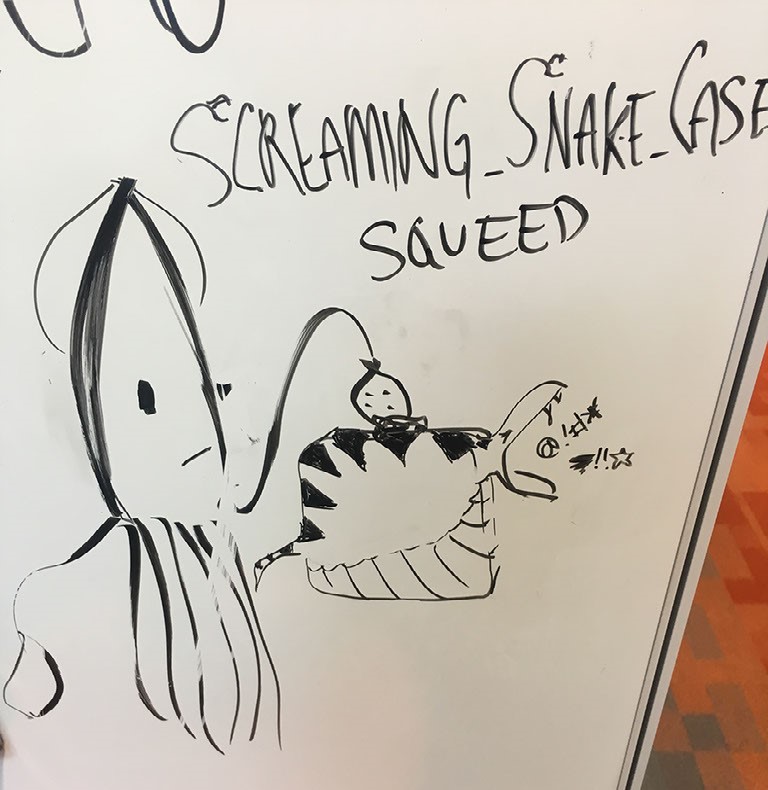 SCREAMING_SNAKE_CASE
SQUEED
@!#!*
!!☆